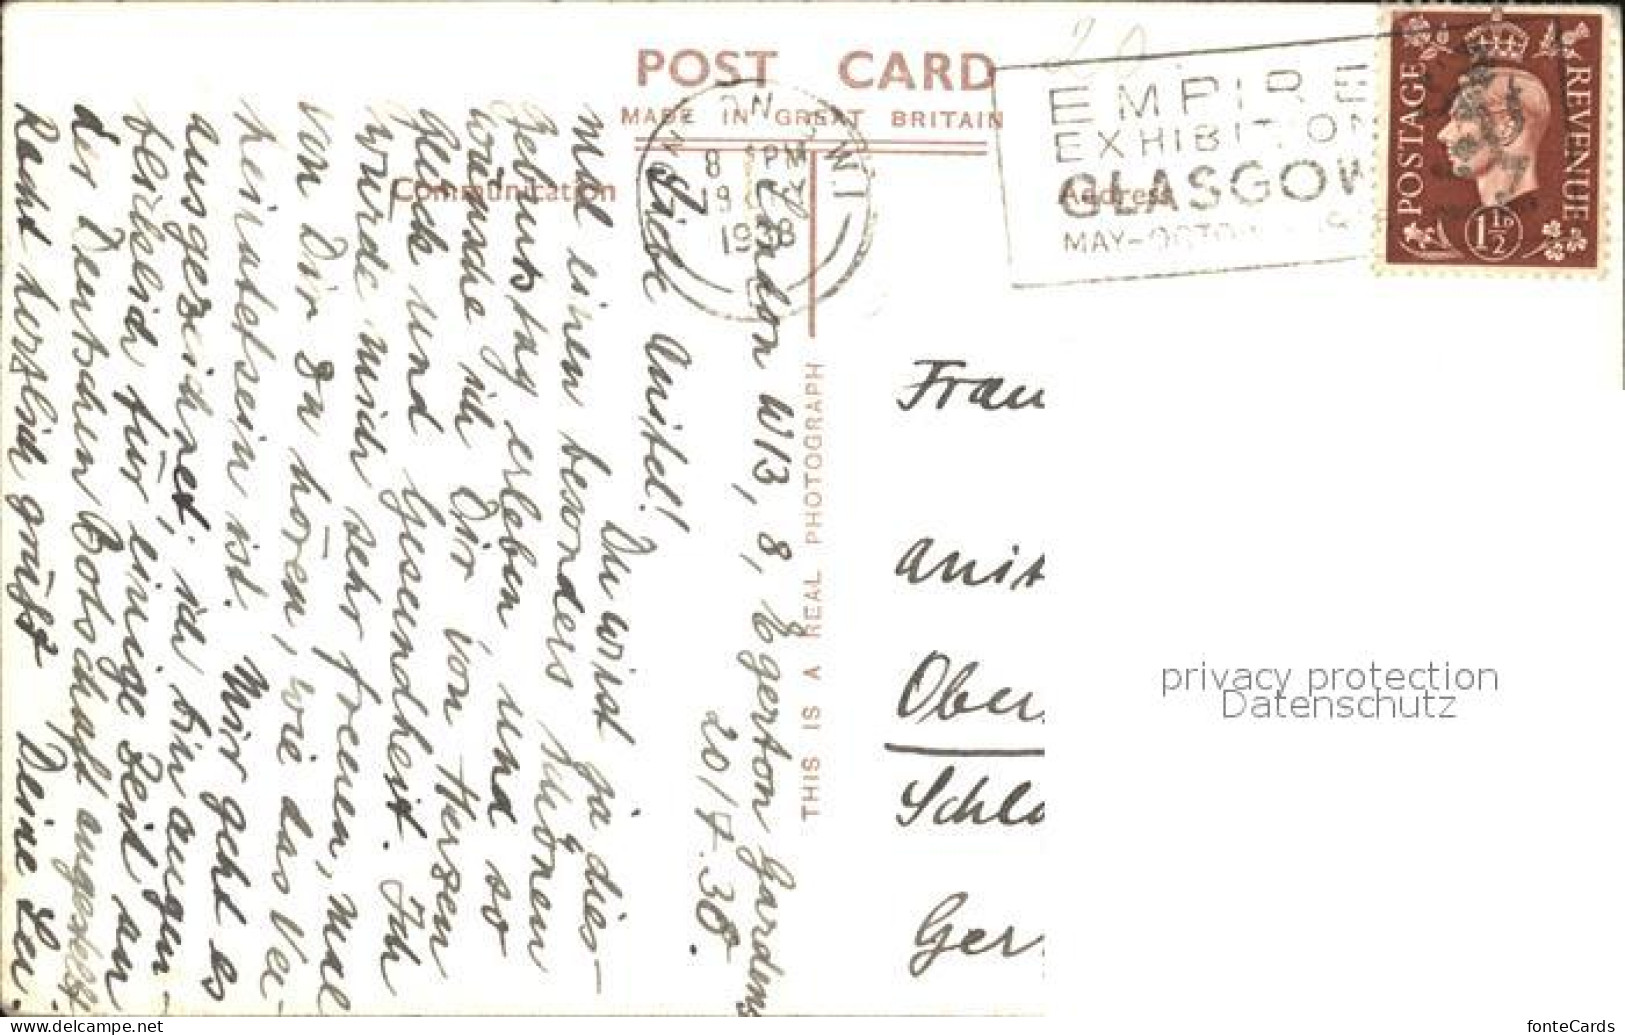 POST CARD
MADE IN GREAT BRITAIN
Communication
Address
THIS IS A REAL PHOTOGRAPH
8 PM
19
1938
W.1
EMPIRE
EXHIBITION
GLASGOW
MAY-OCTO
POSTAGE
REVENUE
1½D
London W13, 8, Egerton Gardens
20/4.38.
Liebe Anitel!
Du wirst ja dies-
mal einen besonders schönen
Geburtstag erleben, und so
wünsche ich Dir von Herzen
Glück und Gesundheit. Ich
würde mich sehr freuen, mal
von Dir zu hören, wie das Ver-
heiratetsein ist. Mir geht es
ausgezeichnet, ich bin augen-
blicklich für einige Zeit an
der Deutschen Botschaft angestellt.
Recht herzlich grüßt Deine
Frau
Anit
Ober
Schlo
Ger
privacy protection
Datenschutz
www.delcampe.net/de
fonteCards